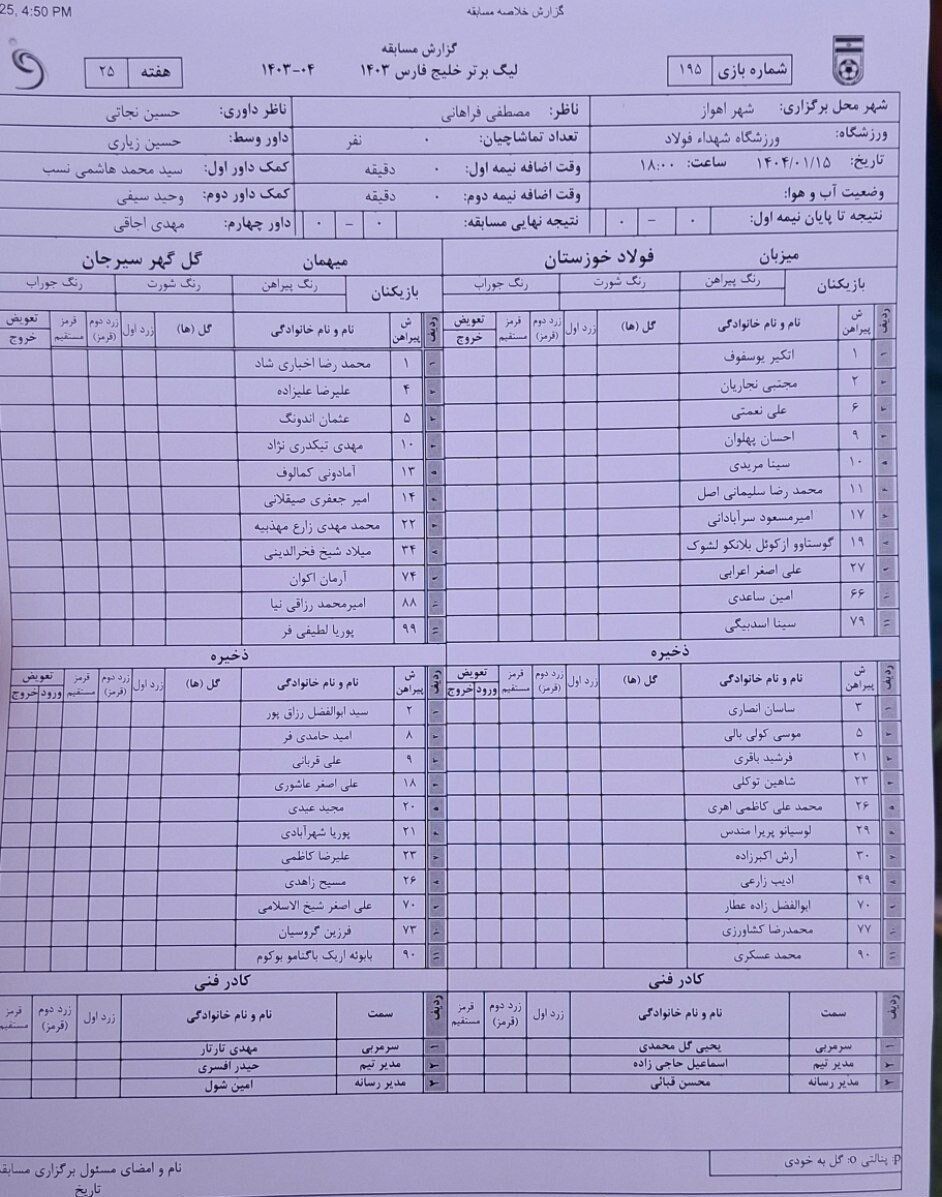 25, 4:50 PM
گزارش خلاصه مسابقه
گزارش مسابقه
شماره بازی ۱۹۵
لیگ برتر خلیج فارس ۱۴۰۳
۱۴۰۳-۰۴
هفته ۲۵
شهر محل برگزاری: شهر اهواز ناظر: مصطفی فراهانی ناظر داوری: حسین نجاتی
ورزشگاه: ورزشگاه شهداء فولاد تعداد تماشاچیان: ۰ نفر داور وسط: حسین زیاری
تاریخ: ۱۴۰۴/۰۱/۱۵ ساعت: ۱۸:۰۰ وقت اضافه نیمه اول: ۰ دقیقه کمک داور اول: سید محمد هاشمی نسب
وضعیت آب و هوا: وقت اضافه نیمه دوم: ۰ دقیقه کمک داور دوم: وحید سیفی
نتیجه تا پایان نیمه اول: ۰ – ۰ نتیجه نهایی مسابقه: ۰ – ۰ داور چهارم: مهدی اجاقی
میزبان فولاد خوزستان
بازیکنان رنگ پیراهن رنگ شورت رنگ جوراب
ردیف ش پیراهن نام و نام خانوادگی گل (ها) زرد اول زرد دوم (قرمز) قرمز مستقیم تعویض خروج
۱ ۱ اتکیر یوسفوف
۲ ۲ مجتبی نجاریان
۳ ۶ علی نعمتی
۴ ۹ احسان پهلوان
۵ ۱۰ سینا مریدی
۶ ۱۱ محمد رضا سلیمانی اصل
۷ ۱۷ امیرمسعود سرآبادانی
۸ ۱۹ گوستاوو ازکوئل بلانکو لشوک
۹ ۲۷ علی اصغر اعرابی
۱۰ ۶۶ امین ساعدی
۱۱ ۷۹ سینا اسدبیگی
ذخیره
ردیف ش پیراهن نام و نام خانوادگی گل (ها) زرد اول زرد دوم (قرمز) قرمز مستقیم تعویض ورود خروج
۱ ۳ ساسان انصاری
۲ ۵ موسی کولی بالی
۳ ۲۱ فرشید باقری
۴ ۲۳ شاهین توکلی
۵ ۲۶ محمد علی کاظمی اهری
۶ ۲۹ لوسیانو پریرا مندس
۷ ۳۰ آرش اکبرزاده
۸ ۴۹ ادیب زارعی
۹ ۷۰ ابوالفضل زاده عطار
۱۰ ۷۷ محمدرضا کشاورزی
۱۱ ۹۰ محمد عسکری
کادر فنی
ردیف سمت نام و نام خانوادگی زرد اول زرد دوم (قرمز) قرمز مستقیم
۱ سرمربی یحیی گل محمدی
۲ مدیر تیم اسماعیل حاجی زاده
۳ مدیر رسانه محسن قبائی
میهمان گل گهر سیرجان
بازیکنان رنگ پیراهن رنگ شورت رنگ جوراب
ردیف ش پیراهن نام و نام خانوادگی گل (ها) زرد اول زرد دوم (قرمز) قرمز مستقیم تعویض خروج
۱ ۱ محمد رضا اخباری شاد
۲ ۴ علیرضا علیزاده
۳ ۵ عثمان اندونگ
۴ ۱۰ مهدی تیکدری نژاد
۵ ۱۳ آمادونی کمالوف
۶ ۱۴ امیر جعفری صیقلانی
۷ ۲۲ محمد مهدی زارع مهذبیه
۸ ۳۴ میلاد شیخ فخرالدینی
۹ ۷۴ آرمان اکوان
۱۰ ۸۸ امیرمحمد رزاقی نیا
۱۱ ۹۹ پوریا لطیفی فر
ذخیره
ردیف ش پیراهن نام و نام خانوادگی گل (ها) زرد اول زرد دوم (قرمز) قرمز مستقیم تعویض ورود خروج
۱ ۲ سید ابوالفضل رزاق پور
۲ ۸ امید حامدی فر
۳ ۹ علی قربانی
۴ ۱۸ علی اصغر عاشوری
۵ ۲۰ مجید عیدی
۶ ۲۱ پوریا شهرآبادی
۷ ۲۳ علیرضا کاظمی
۸ ۲۶ مسیح زاهدی
۹ ۷۰ علی اصغر شیخ الاسلامی
۱۰ ۷۳ فرزین گروسیان
۱۱ ۹۰ بابوئه اریک باگنامو بوکوم
کادر فنی
ردیف سمت نام و نام خانوادگی زرد اول زرد دوم (قرمز) قرمز مستقیم
۱ سرمربی مهدی تارتار
۲ مدیر تیم حیدر افسری
۳ مدیر رسانه امین شول
p: پنالتی o: گل به خودی
نام و امضای مسئول برگزاری مسابقه
تاریخ